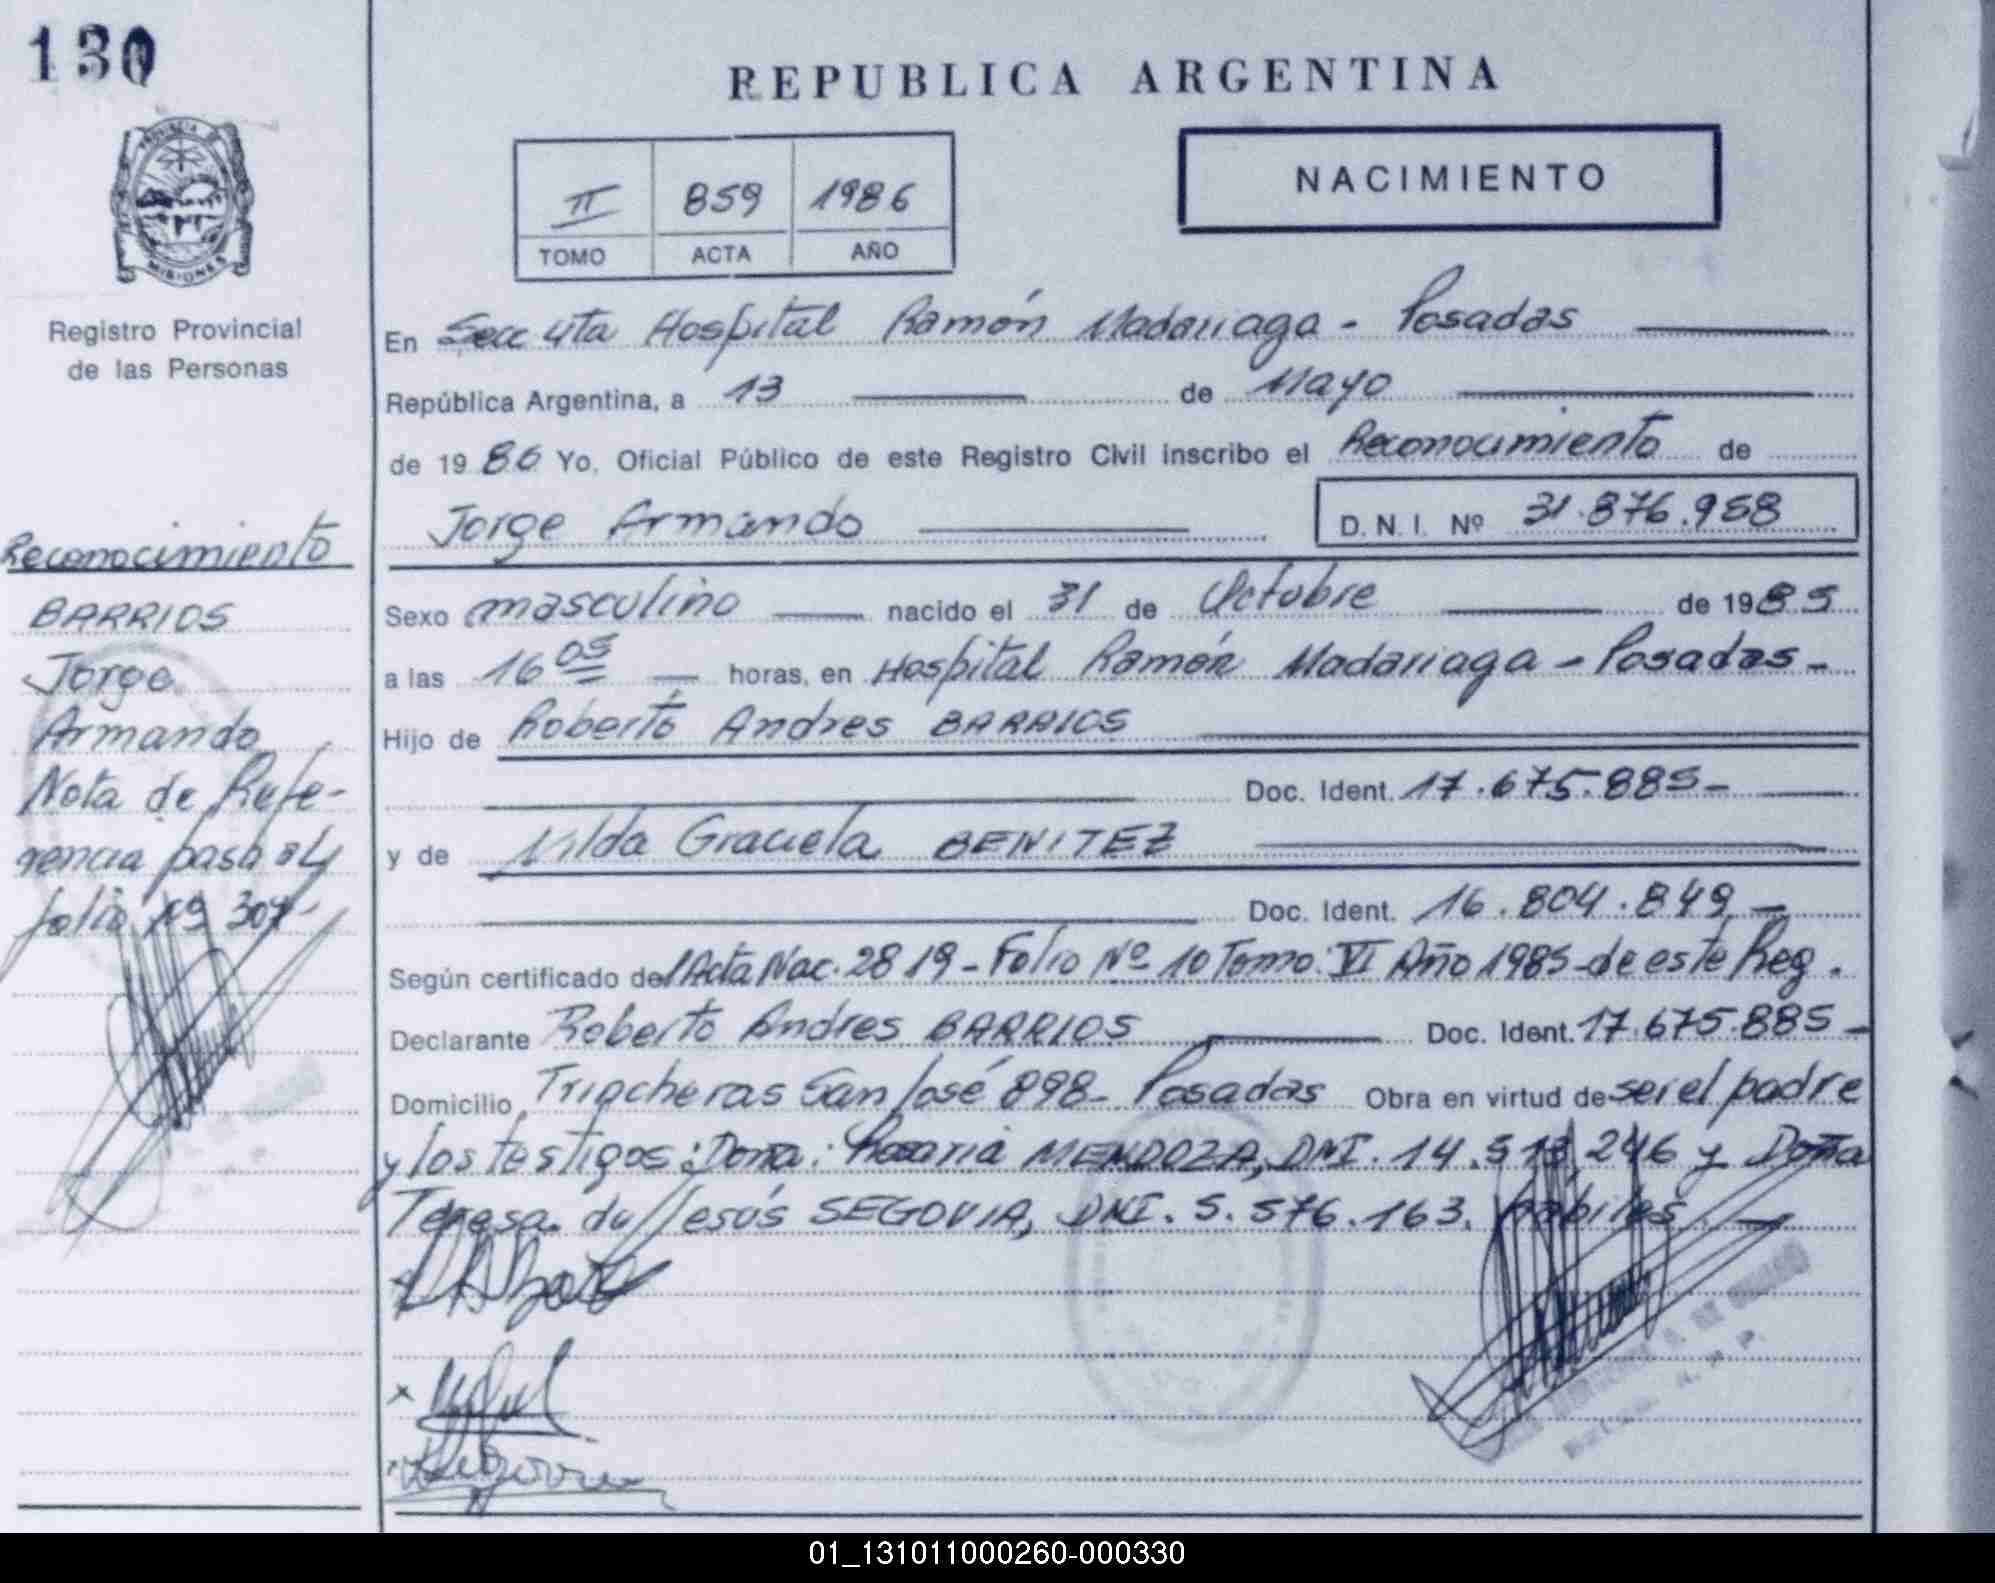 130
REPUBLICA ARGENTINA
NACIMIENTO
II 859 1986
TOMO ACTA AÑO
PROVINCIA DE
MISIONES
Registro Provincial
de las Personas
En Secc 4ta Hospital Ramón Madariaga - Posadas
República Argentina, a 13 de Mayo
de 1986 Yo, Oficial Público de este Registro Civil inscribo el Reconocimiento de
Jorge Armando D.N.I. Nº 31.876.958
Reconocimiento
BARRIOS
Jorge
Armando
Nota de Refe-
rencia pasa al
folio Nº 307-
Sexo masculino nacido el 31 de Octubre de 1985
a las 16 05 horas, en Hospital Ramón Madariaga - Posadas -
Hijo de Roberto Andres BARRIOS
Doc. Ident. 17.675.885-
y de Nilda Graciela BENITEZ
Doc. Ident. 16.804.849 -
Según certificado del Acta Nac. 2819 - Folio Nº 10 Tomo: VI Año 1985 - de este Reg.
Declarante Roberto Andres BARRIOS Doc. Ident. 17.675.885 -
Domicilio Trincheras San José 898 - Posadas Obra en virtud de ser el padre
y los testigos: Doña: Rosaria MENDOZA, DNI. 14.513.246 y Doña
Teresa de Jesús SEGOVIA, DNI. 5.576.163. hábiles.
01_131011000260-000330